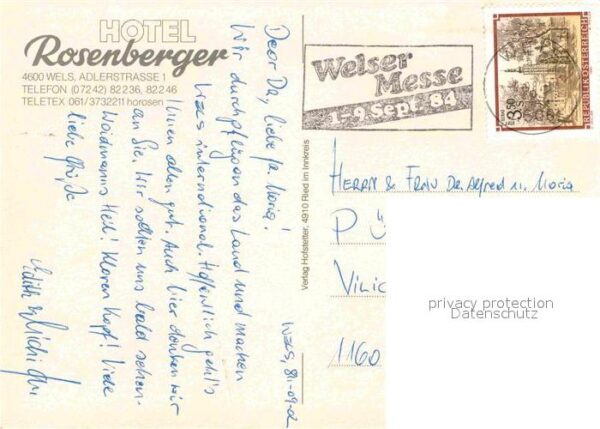 HOTEL
Rosenberger
4600 WELS, ADLERSTRASSE 1
TELEFON (07242) 82236, 82246
TELETEX 061/3732211 horosen
Welser
Messe
1.-9. Sept. 84
REPUBLIK ÖSTERREICH
S 3.50
Dear Da, liebe Fr. Maria!
Wir durchpflügen das Land und machen
WELS international. Hoffentlich geht's
Ihnen allen gut. Auch hier denken wir
an Sie. Wir sollten uns bald sehen.
Waidmanns Heil! Klaren Kopf! Viele
liebe Grüße
Edith & Michi
WELS, 84-09-02
Verlag Hofstetter, 4910 Ried im Innkreis
HERRN & FRAU Dr. Alfred u. Maria
P Ü
VILIC
1160
privacy protection
Datenschutz